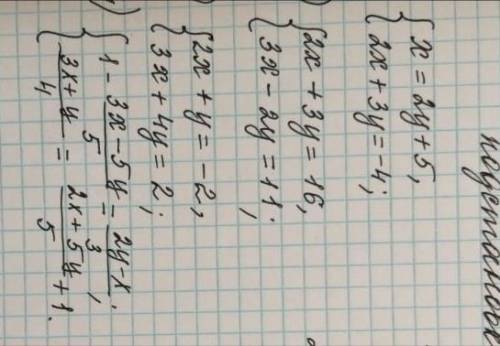 { x = 2y + 5,
2x + 3y = -4;
{ 2x + 3y = 16,
3x - 2y = 11;
{ 2x + y = -2,
3x + 4y = 2;
{ 1 - (3x - 5y)/5 = (2y - x)/3,
(3x + y)/4 = (2x + 5y)/5 + 1.